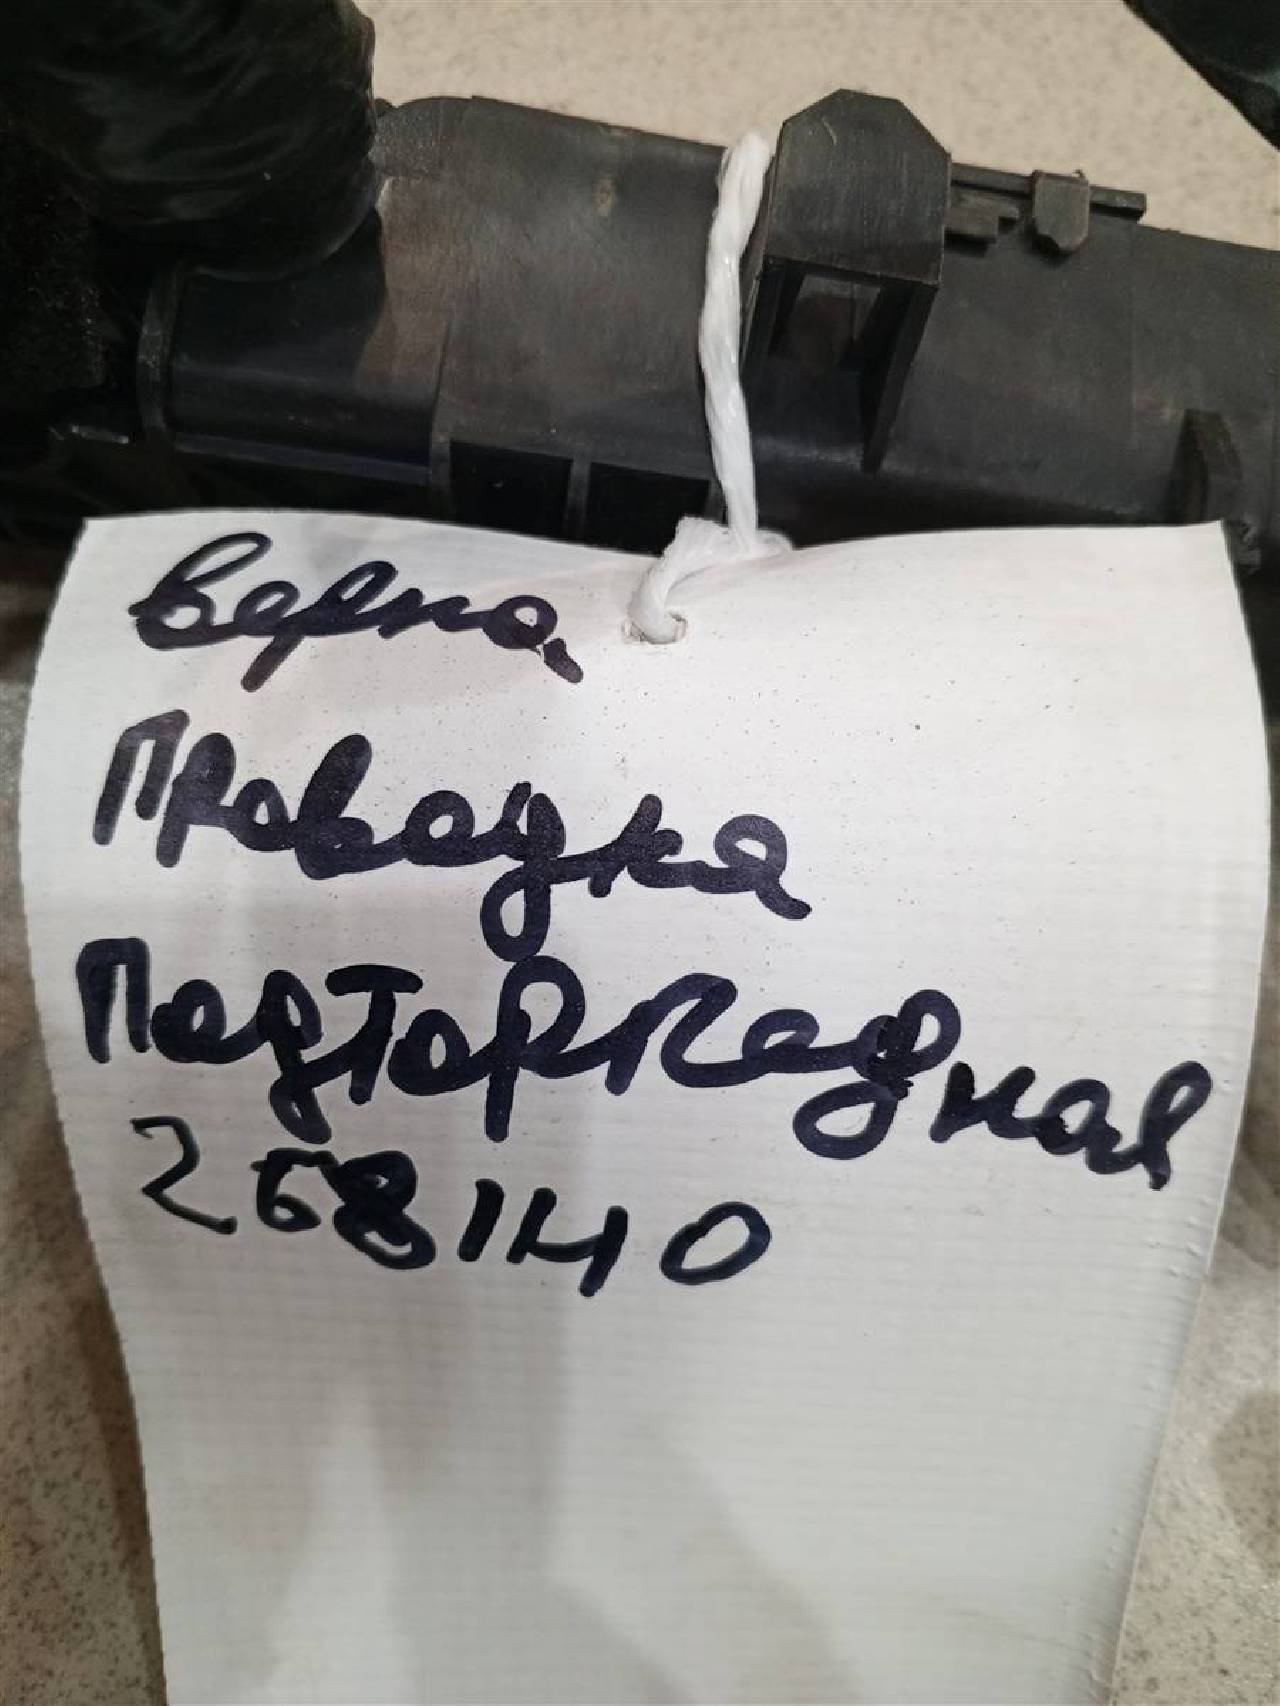 Верна,
Проводка
Подторпедная
268140